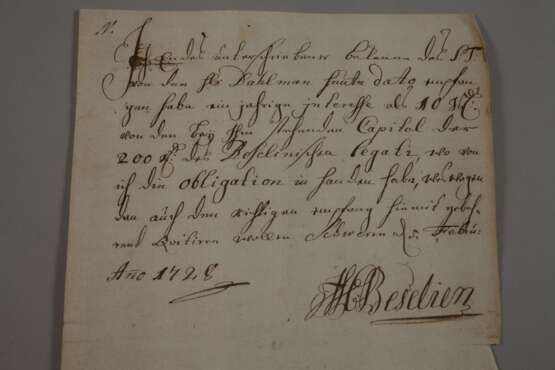 N.
Endes unterschriebener bekenne das ST
von den Hs Dahlman heute dato empfan
gen habe ein jahrige interesse als 10
von den bey Ihm stehenden Capital der
200 des Beselinischen legats, wo von
ich die obligation in handen habe, weswegen
den auch den richtigen empfang hiemit gebüh
rent Quitiren wollen Schwerin d. 5. Febru:
Año 1728
Beselien